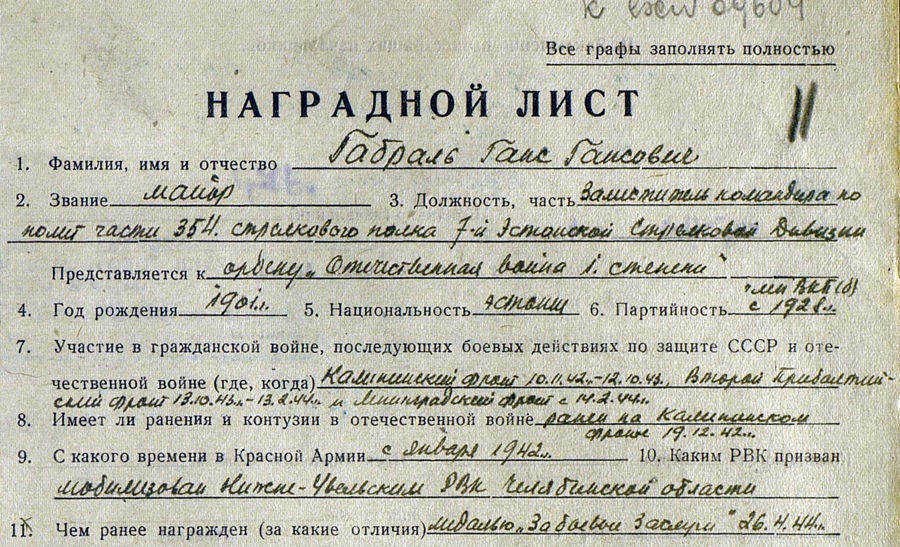 Все графы заполнять полностью
НАГРАДНОЙ ЛИСТ
11
1. Фамилия, имя и отчество Габраль Ганс Гансович
2. Звание майор 3. Должность, часть Заместитель командира по
полит части 354. стрелкового полка 7-й Эстонской Стрелковой Дивизии
Представляется к ордену „Отечественная война I. степени"
член ВКП(б)
4. Год рождения 1901г. 5. Национальность эстонец 6. Партийность с 1928г.
7. Участие в гражданской войне, последующих боевых действиях по защите СССР и оте-
чественной войне (где, когда) Калининский фронт 10.11.42г.-12.10.43., Второй Прибалтий-
ский фронт 13.10.43г.-13.2.44г. и Ленинградский фронт с 14.2.44г.
8. Имеет ли ранения и контузии в отечественной войне ранен на Калининском
фронте 19.12.42г.
9. С какого времени в Красной Армии с января 1942г. 10. Каким РВК призван
мобилизован Нижне-Увельским РВК Челябинской области
11. Чем ранее награжден (за какие отличия) медалью „За боевые Заслуги" 26.4.44г.